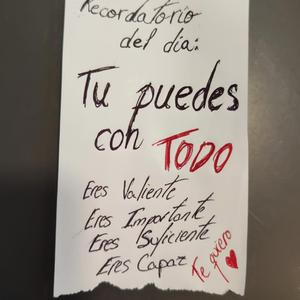 Recordatorio
del día:
Tu puedes
con TODO
Eres Valiente
Eres Importante
Eres Suficiente
Eres Capaz
Te quiero